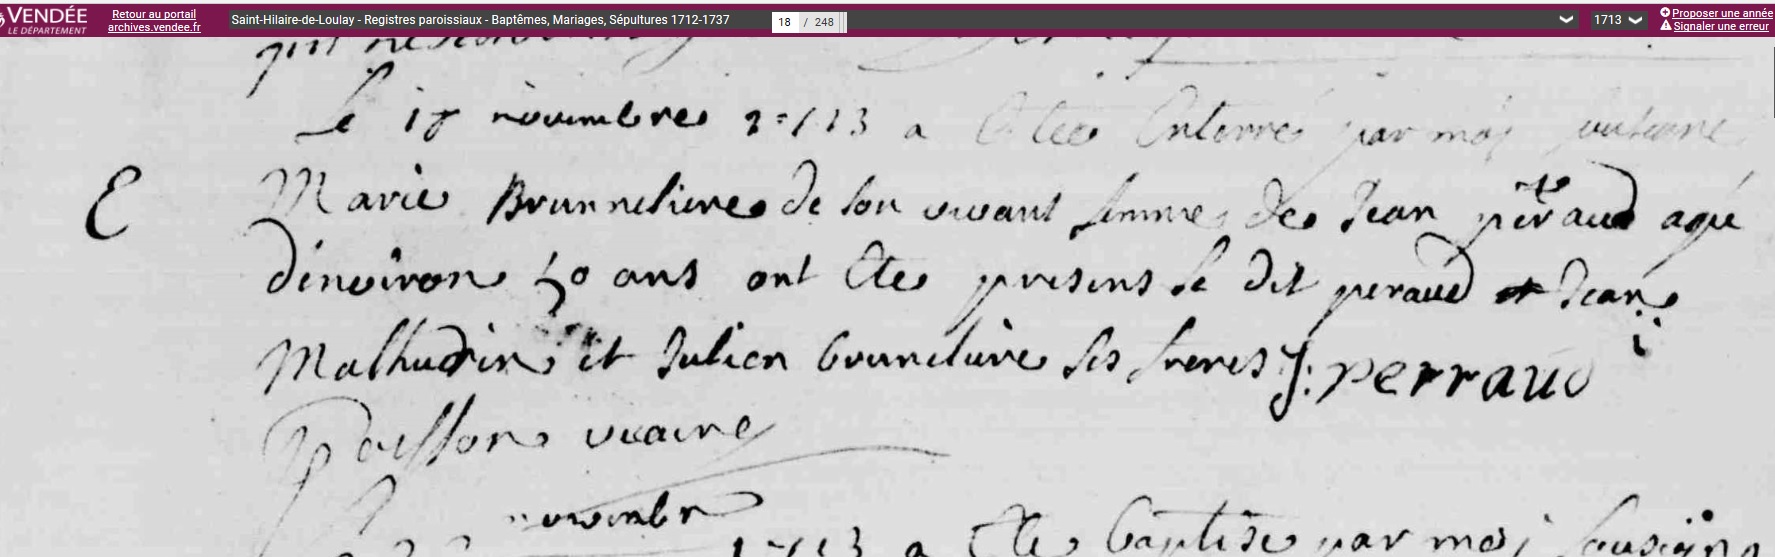 VENDÉE
LE DÉPARTEMENT
Retour au portail
archives.vendee.fr
Saint-Hilaire-de-Loulay - Registres paroissiaux - Baptêmes, Mariages, Sépultures 1712-1737
18 / 248
1713
Proposer une année
Signaler une erreur
Le novembre 1713 a ete enterré par moi
E
Marie Brunneliere de son vivant femme de Jean peraud agé
d'environ 50 ans ont ete presens le dit peraud Jean
Mathurin et Julien bruneliere ses freres J: perraud
vicaire
novembr
1713 a ete baptise par moi